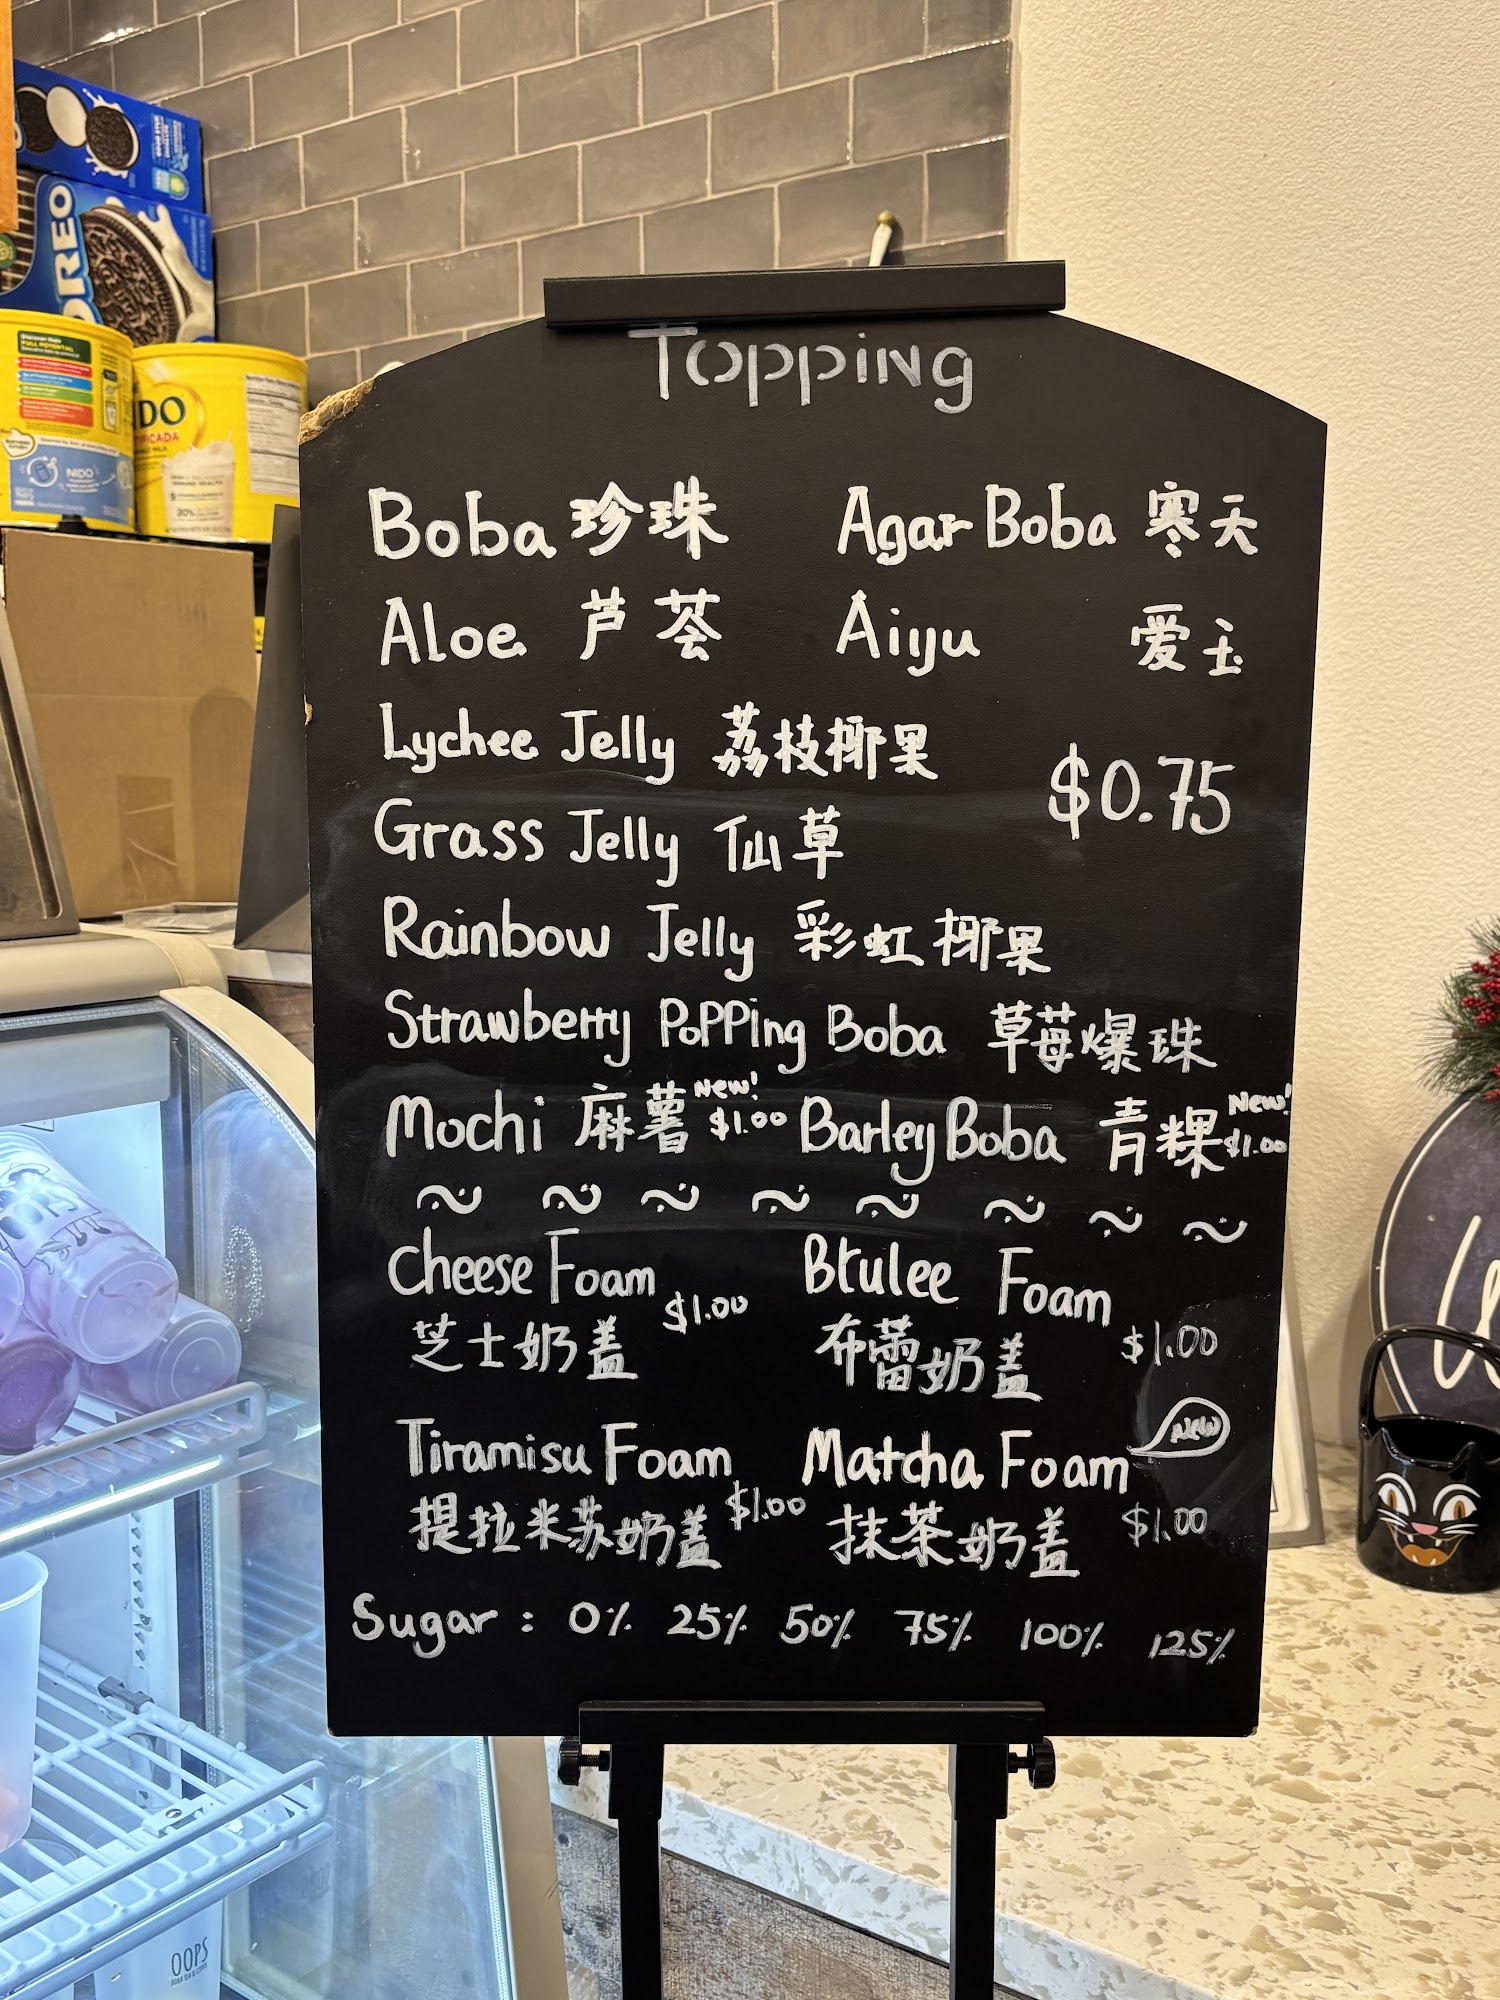 OREO
NIDO
FULL POTENTIAL
NIDO
20%
Topping
Boba 珍珠 Agar Boba 寒天
Aloe 芦荟 Aiyu 爱玉
Lychee Jelly 荔枝椰果
$0.75
Grass Jelly 仙草
Rainbow Jelly 彩虹椰果
Strawberry Popping Boba 草莓爆珠
Mochi 麻薯 New! $1.00 Barley Boba 青粿 New! $1.00
Cheese Foam $1.00 Brulee Foam
芝士奶盖 布蕾奶盖 $1.00
Tiramisu Foam Matcha Foam New
提拉米苏奶盖 $1.00 抹茶奶盖 $1.00
Sugar: 0% 25% 50% 75% 100% 125%
OOPS